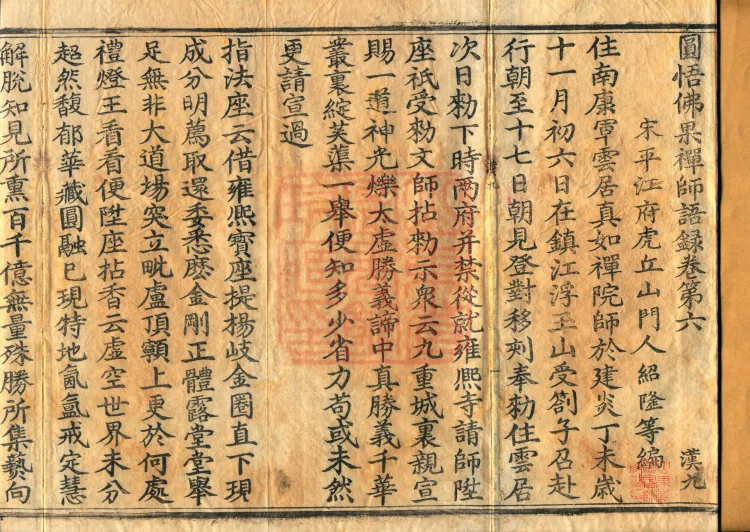 圓悟佛果禪師語録卷第六 漢九
宋平江府虎丘山門人紹隆等編
住南康軍雲居真如禪院師於建炎丁未歲
十一月初六日在鎮江浮玉山受劄子召赴
行朝至十七日朝見登對移刻奉勑住雲居
次日勑下時兩府并禁從就雍熈寺請師陞
座祇受勑文師拈勑示衆云九重城裏親宣
賜一道神光爍大虛勝義諦中真勝義千華
叢裏綻芙蕖一舉便知多少省力苟或未然
更請宣過
指法座云借雍熈寶座提楊岐金圈直下現
成分明薦取還委悉麽金剛正體露堂堂舉
足無非大道場突立毗盧頂𩕳上更於何處
禮燈王看看便陞座拈香云虛空世界未分
超然馥郁華藏圓融已現特地氤氳戒定慧
解脫知見所熏百千億無量殊勝所集爇向